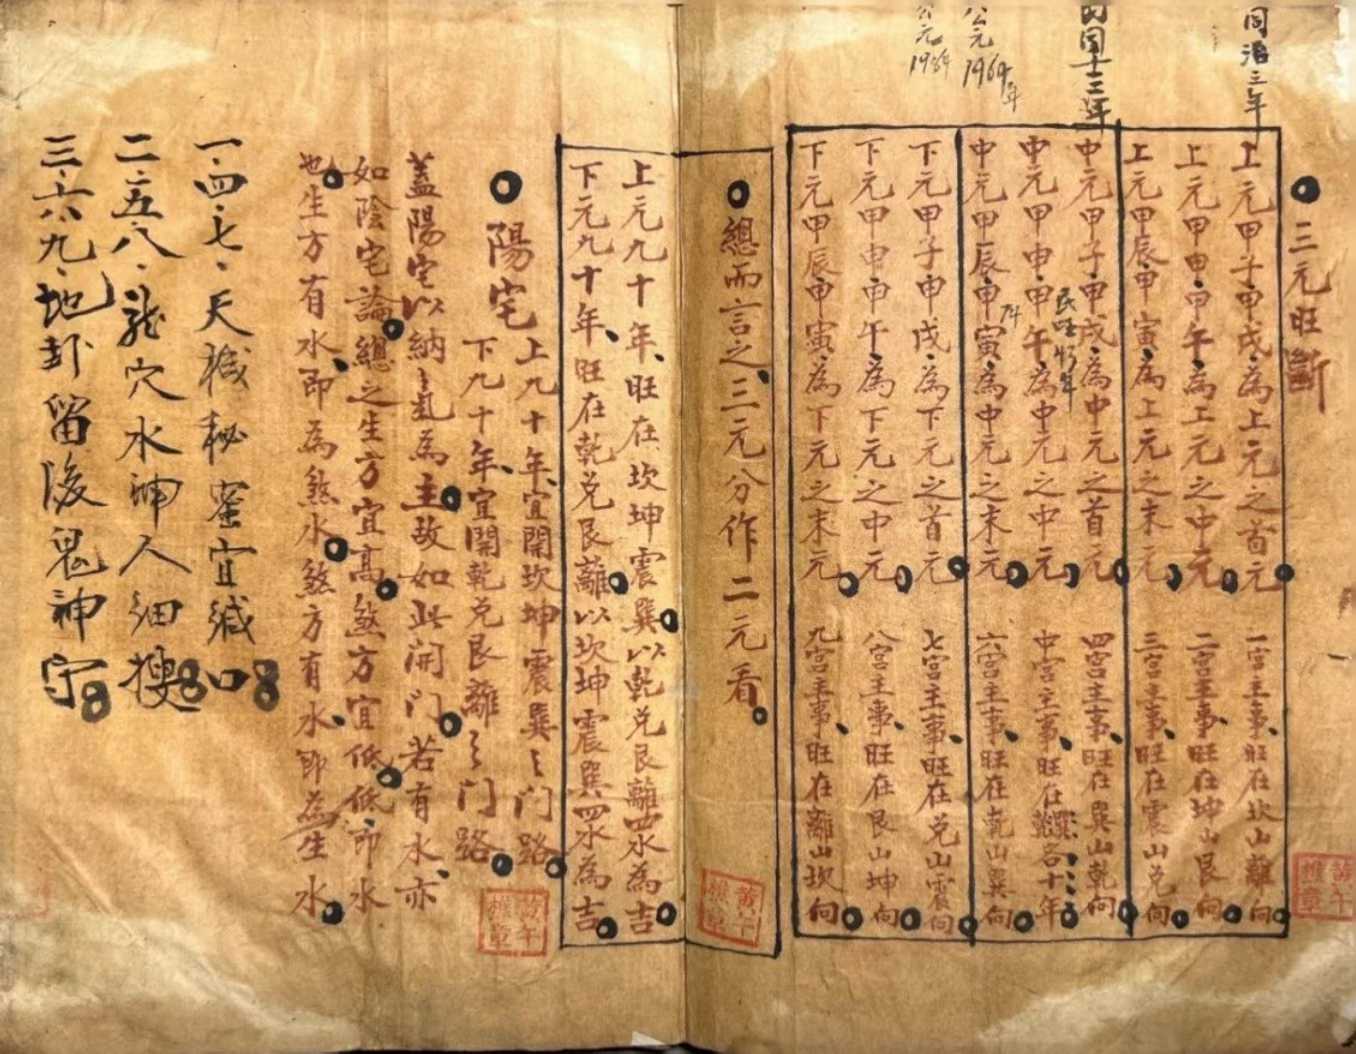 同治三年
民國十三年
公元1964年
公元1984
三元旺斷
上元甲子甲戌為上元之首元 一宮主事旺在坎山離向
上元甲申甲午為上元之中元 二宮主事旺在坤山艮向
上元甲辰甲寅為上元之末元 三宮主事旺在震山兌向
中元甲子甲戌為中元之首元 四宮主事旺在巽山乾向
中元甲申甲午為中元之中元 中宮主事旺在乾巽各十年
中元甲辰甲寅為中元之末元 六宮主事旺在乾山巽向
下元甲子甲戌為下元之首元 七宮主事旺在兌山震向
下元甲申甲午為下元之中元 八宮主事旺在艮山坤向
下元甲辰甲寅為下元之末元 九宮主事旺在離山坎向
總而言之三元分作二元看
上元九十年旺在坎坤震巽以乾兌艮離四水為吉
下元九十年旺在乾兌艮離以坎坤震巽四水為吉
陽宅
上九十年宜開坎坤震巽之门路
下九十年宜開乾兌艮離之门路
蓋陽宅以納氣為主故如此開门若有水亦
如陰宅論總之生方宜高煞方宜低低即水
也生方有水即為煞水煞方有水即為生水
一·四·七·天機秘宻宜緘口
二·五八·龍穴水神人细搜
三·六九·地卦留後鬼神守